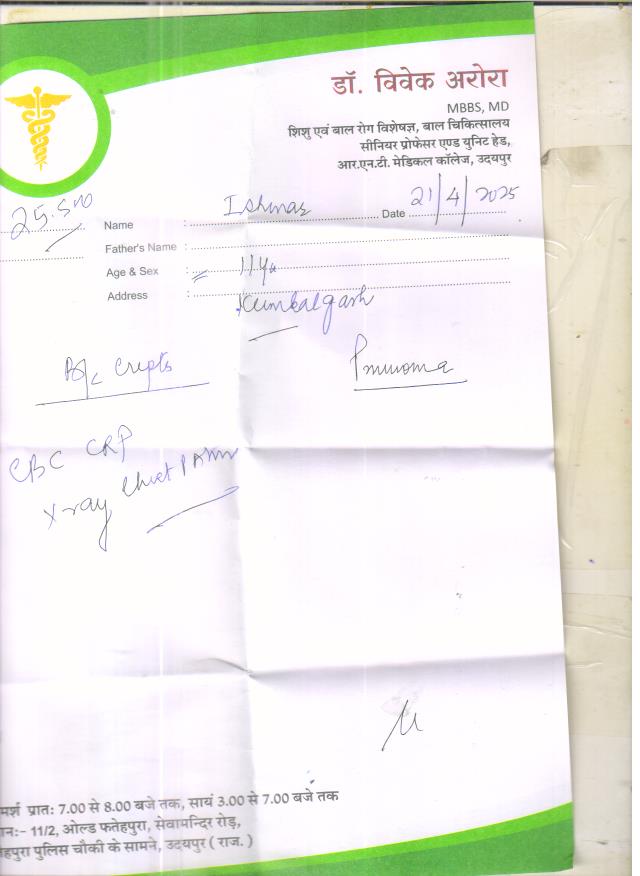 डॉ. विवेक अरोरा
MBBS, MD
शिशु एवं बाल रोग विशेषज्ञ, बाल चिकित्सालय
सीनियर प्रोफेसर एण्ड युनिट हेड,
आर.एन.टी. मेडिकल कॉलेज, उदयपुर
Name : Date 21/4/2025
Father's Name :
Age & Sex : 11
Address : Kumbalgarh
B/L Crepts
CBC CRP
X-ray Chest
मर्श प्रातः 7.00 से 8.00 बजे तक, सायं 3.00 से 7.00 बजे तक
ान:- 11/2, ओल्ड फतेहपुरा, सेवामन्दिर रोड़,
तेहपुरा पुलिस चौकी के सामने, उदयपुर ( राज. )